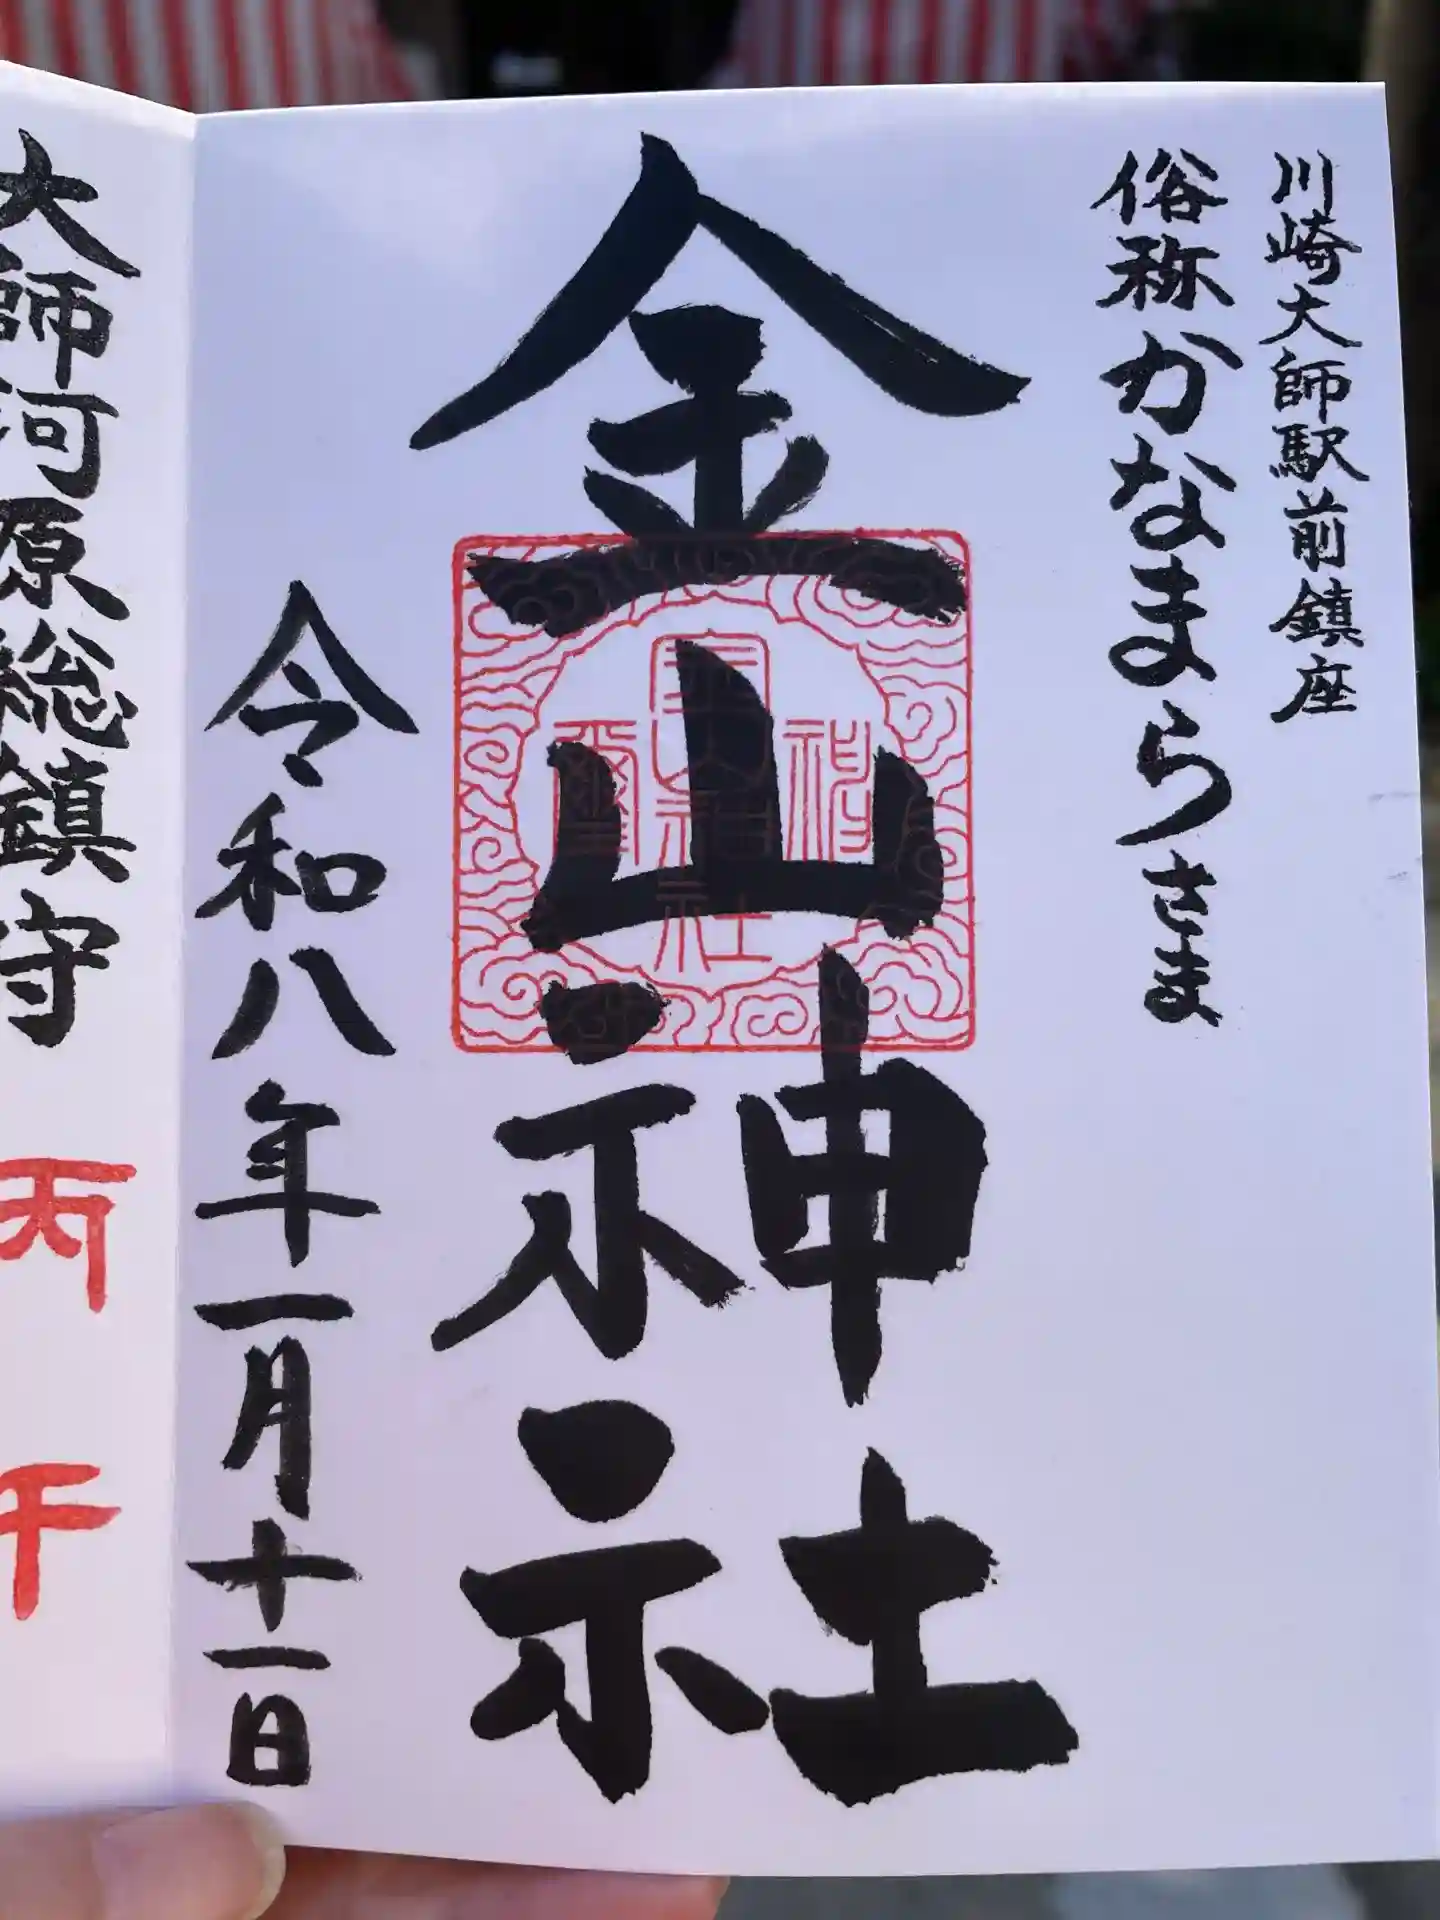 川崎大師駅前鎮座
俗称かなまらさま
金山神社
令和八年一月十一日
大師河原総鎮守
丙
午